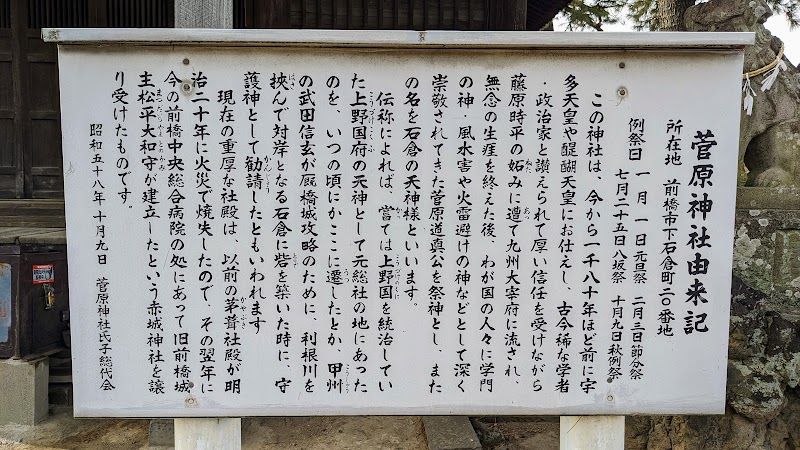 菅原神社由来記
所在地　前橋市下石倉町二〇番地
例祭日　一月一日元旦祭　二月三日節分祭
七月二十五日八坂祭　十月九日秋例祭
この神社は、今から一千八十年ほど前に宇
多天皇や醍醐天皇にお仕えし、古今稀な学者
・政治家と讃えられて厚い信任を受けながら
藤原時平の妬みに遭て九州大宰府に流され、
無念の生涯を終えた後、わが国の人々に学門
の神・風水害や火雷避けの神などとして深く
崇敬されてきた菅原道真公を祭神とし、また
の名を石倉の天神様といいます。
伝称によれば、甞ては上野国を統治してい
た上野国府の元神として元総社の地にあった
のを、いつの頃にかここに遷したとか、甲州
の武田信玄が厩橋城攻略のために、利根川を
挾んで対岸となる石倉に砦を築いた時に、守
護神として勧請したともいわれます
現在の重厚な社殿は、以前の茅葺社殿が明
治二十年に火災で焼失したので、その翌年に
今の前橋中央総合病院の処にあって旧前橋城
主松平大和守が建立したという赤城神社を譲
り受けたものです。
昭和五十八年十月九日　菅原神社氏子総代会